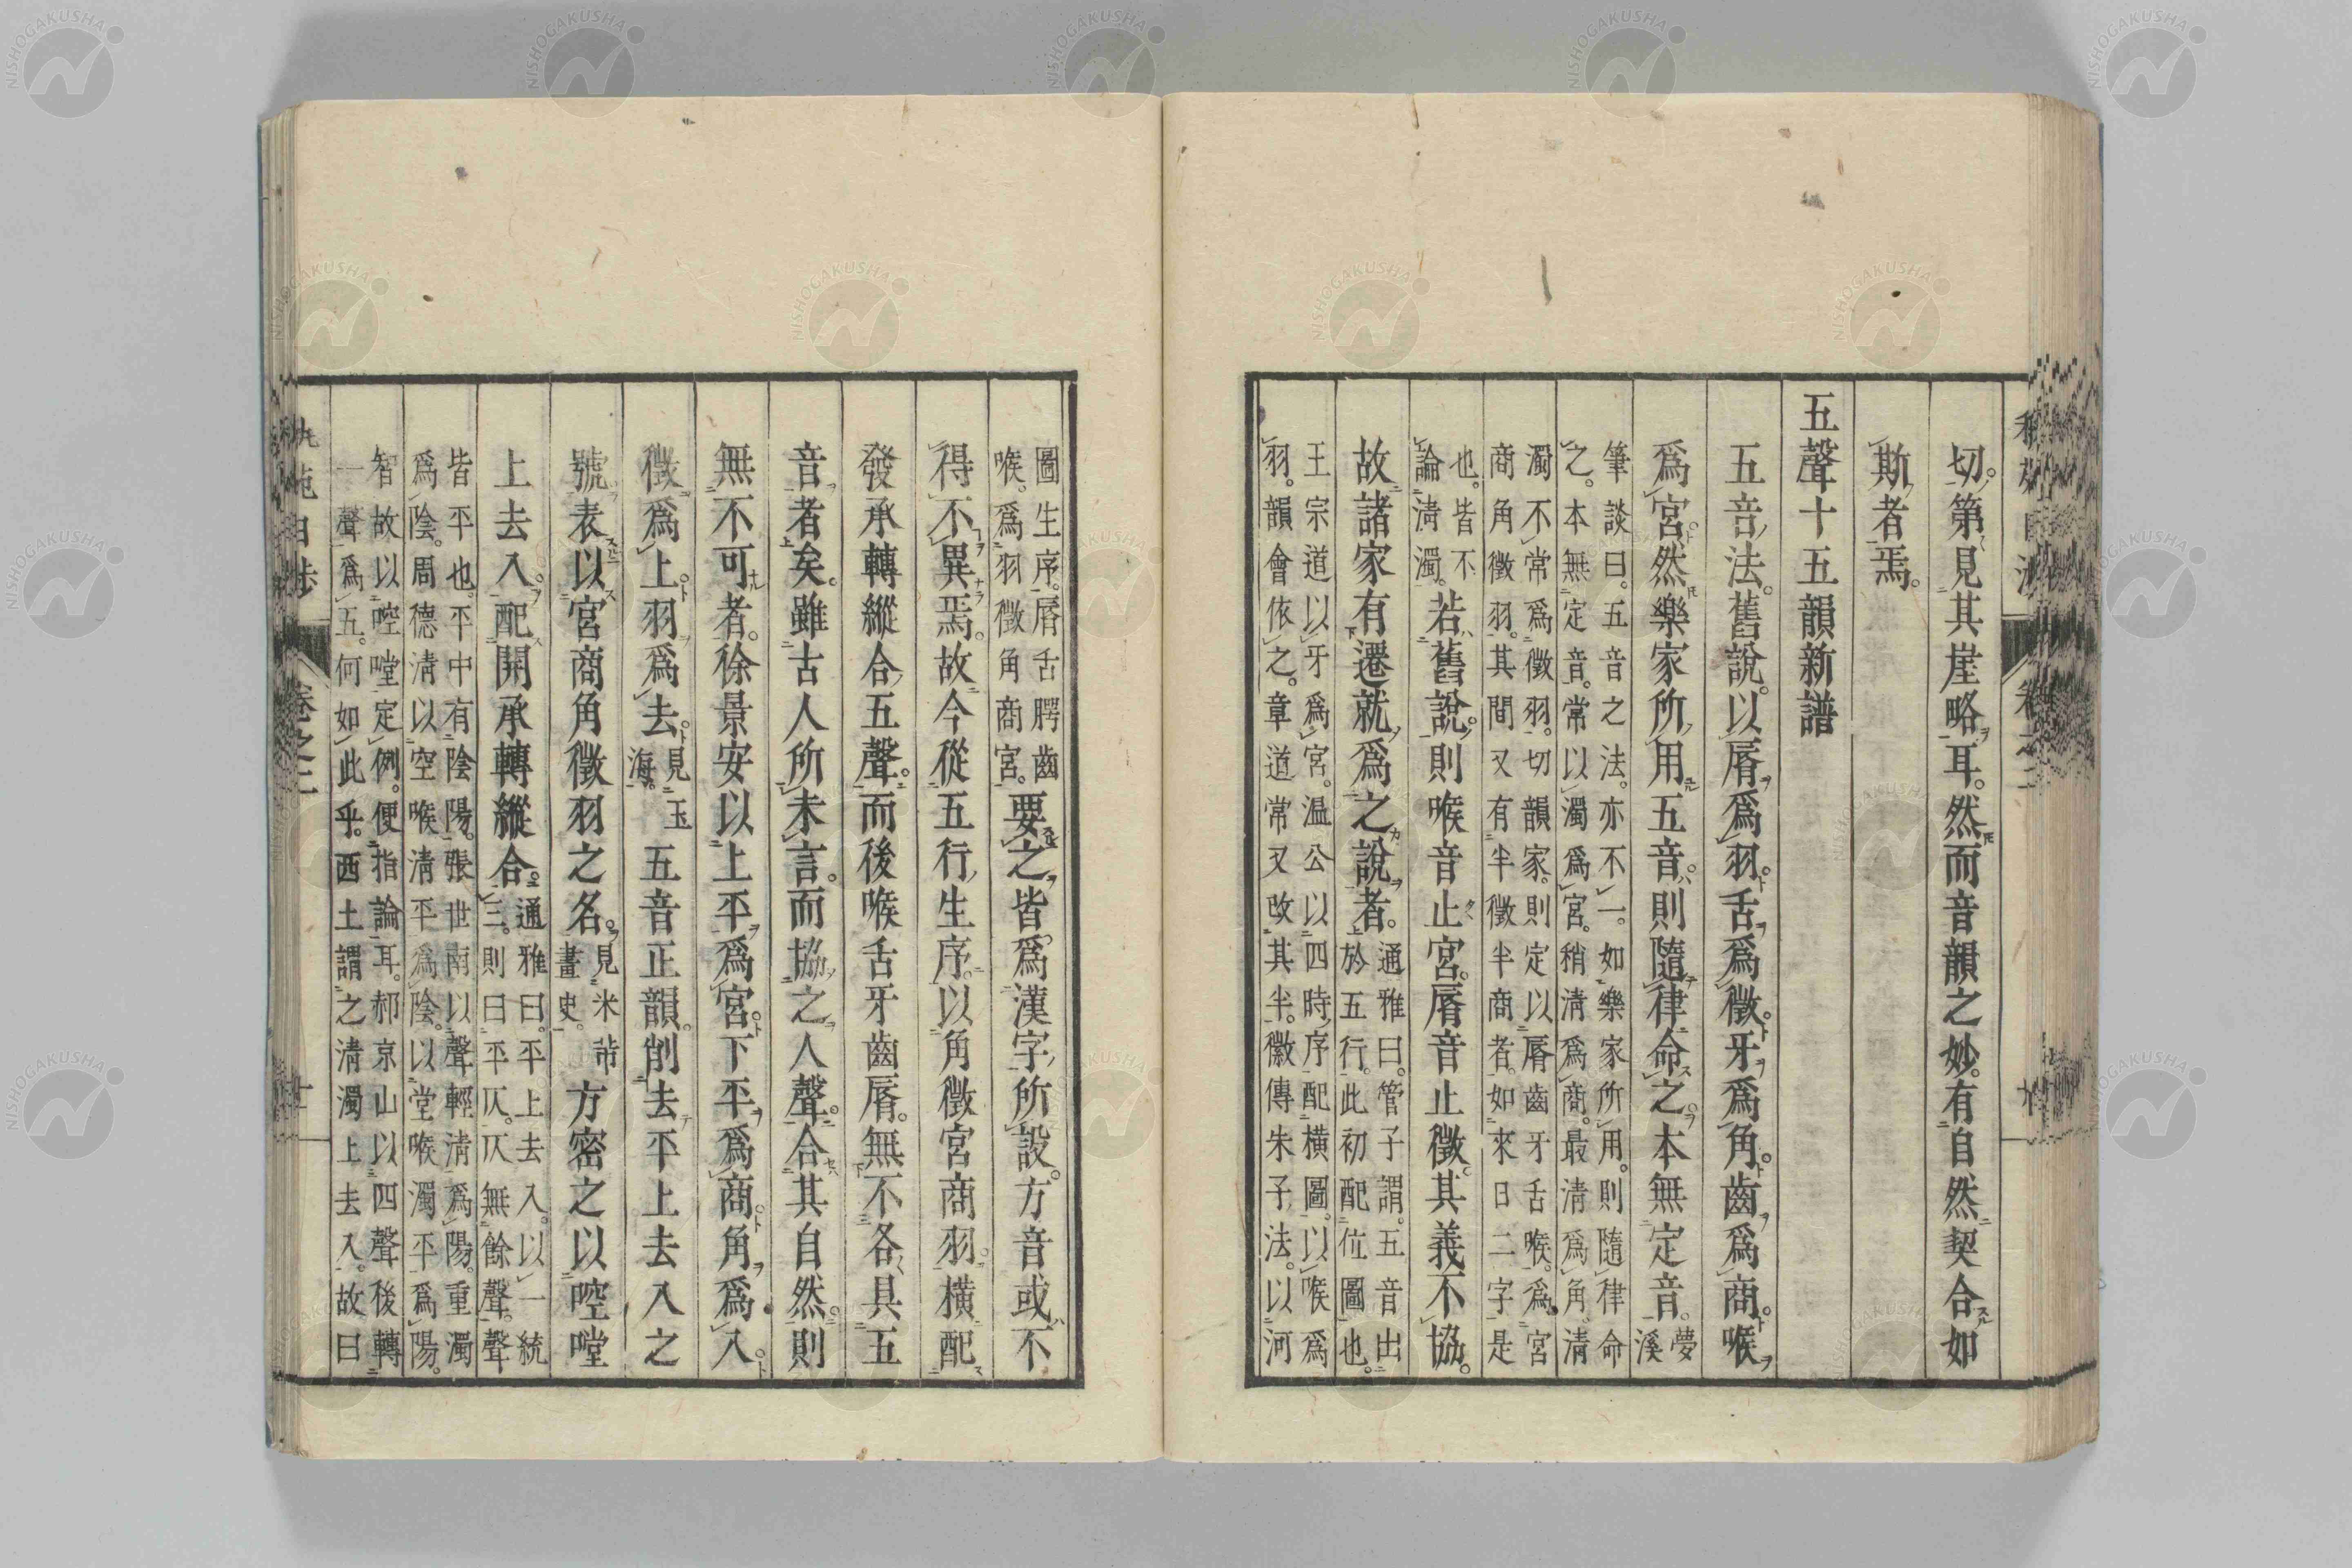 切。第見其崖略耳。然而音韻之妙。有自然契合如
斯者焉。
五聲十五韻新譜
五音法。舊說。以脣爲羽。舌爲徵。牙爲角。齒爲商。喉
爲宮。然樂家所用五音。則隨律命之。本無定音。夢溪
筆談曰。五音之法。亦不一。如樂家所用。則隨律命
之。本無定音。常以濁爲宮。稍清爲商。最清爲角。清
濁不常爲徵羽。切韻家。則定以脣齒牙舌喉。爲宮
商角徵羽。其間又有半徵半商者。如來日二字是
也。皆不論清濁。若舊說。則喉音止宮。脣音止徵。其義不協。
故諸家有遷就爲之說者。通雅曰。管子謂。五音出
於五行。此初配位圖也。
王宗道以牙爲宮。温公以四時序配橫圖。以喉爲
羽。韻會依之。章道常又改其半。徽傳朱子法。以河
圖生序。脣舌腭齒
喉。爲羽徵角商宮。要之皆爲漢字所設。方音或不
得不異焉。故今從五行生序。以角徵宮商羽。橫配
發承轉縱合五聲。而後喉舌牙齒脣。無不各具五
音者矣。雖古人所未言。而協之人聲。合其自然。則
無不可者。徐景安以上平爲宮。下平爲商。角爲入。
徵爲上。羽爲去。見玉海。五音正韻。削去平上去入之
號。表以宮商角徵羽之名。見米芾畫史。方密之以啌嘡
上去入。配開承轉縱合。通雅曰。平上去入。以一統
三。則曰平仄。仄無餘聲。聲
皆平也。平中有陰陽。張世南以聲輕清爲陽。重濁
爲陰。周德清以空喉清平爲陰。以堂喉濁平爲陽。
智故以啌嘡定例。便指論耳。郝京山以四聲後轉
一聲爲五。何如此乎。西土謂之清濁上去入。故曰